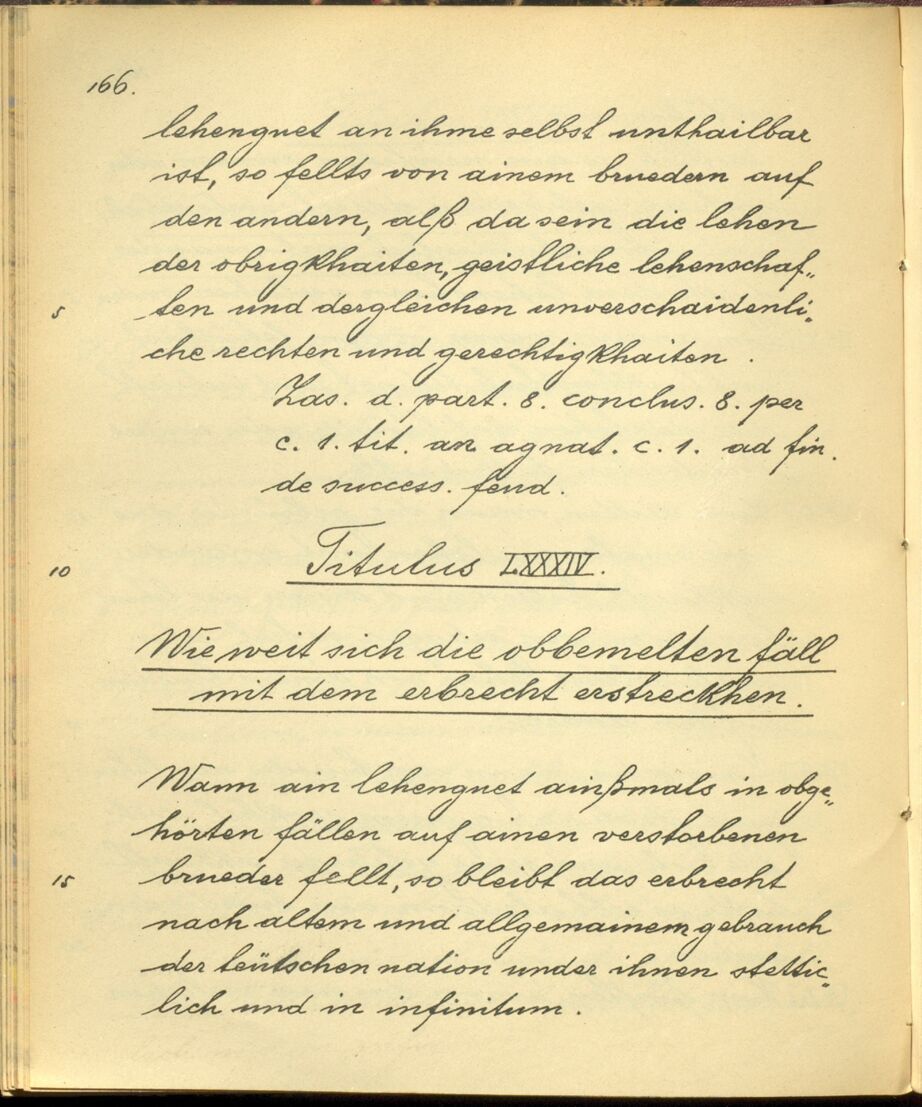 166.
lehenguet an ihme selbst unthailbar
ist, so fellts von ainem bruedern auf
den andern, alß da sein die lehen
der obrigkhaiten, geistliche lehenschaf„
5 ten und dergleichen unverschaidenli„
che rechten und gerechtigkhaiten .
Zas. d. part. 8. conclus. 8. per
c. 1. tit. an agnat. c. 1. ad fin.
de success. feud.
10 Titulus LXXXIV.
Wie weit sich die obbemelten fäll
mit dem erbrecht erstreckhen.
Wann ain lehenguet ainßmals in obge„
hörten fällen auf ainen verstorbenen
15 brueder fellt, so bleibt das erbrecht
nach altem und allgemainem gebrauch
der teütschen nation under ihnen stettic„
lich und in infinitum.